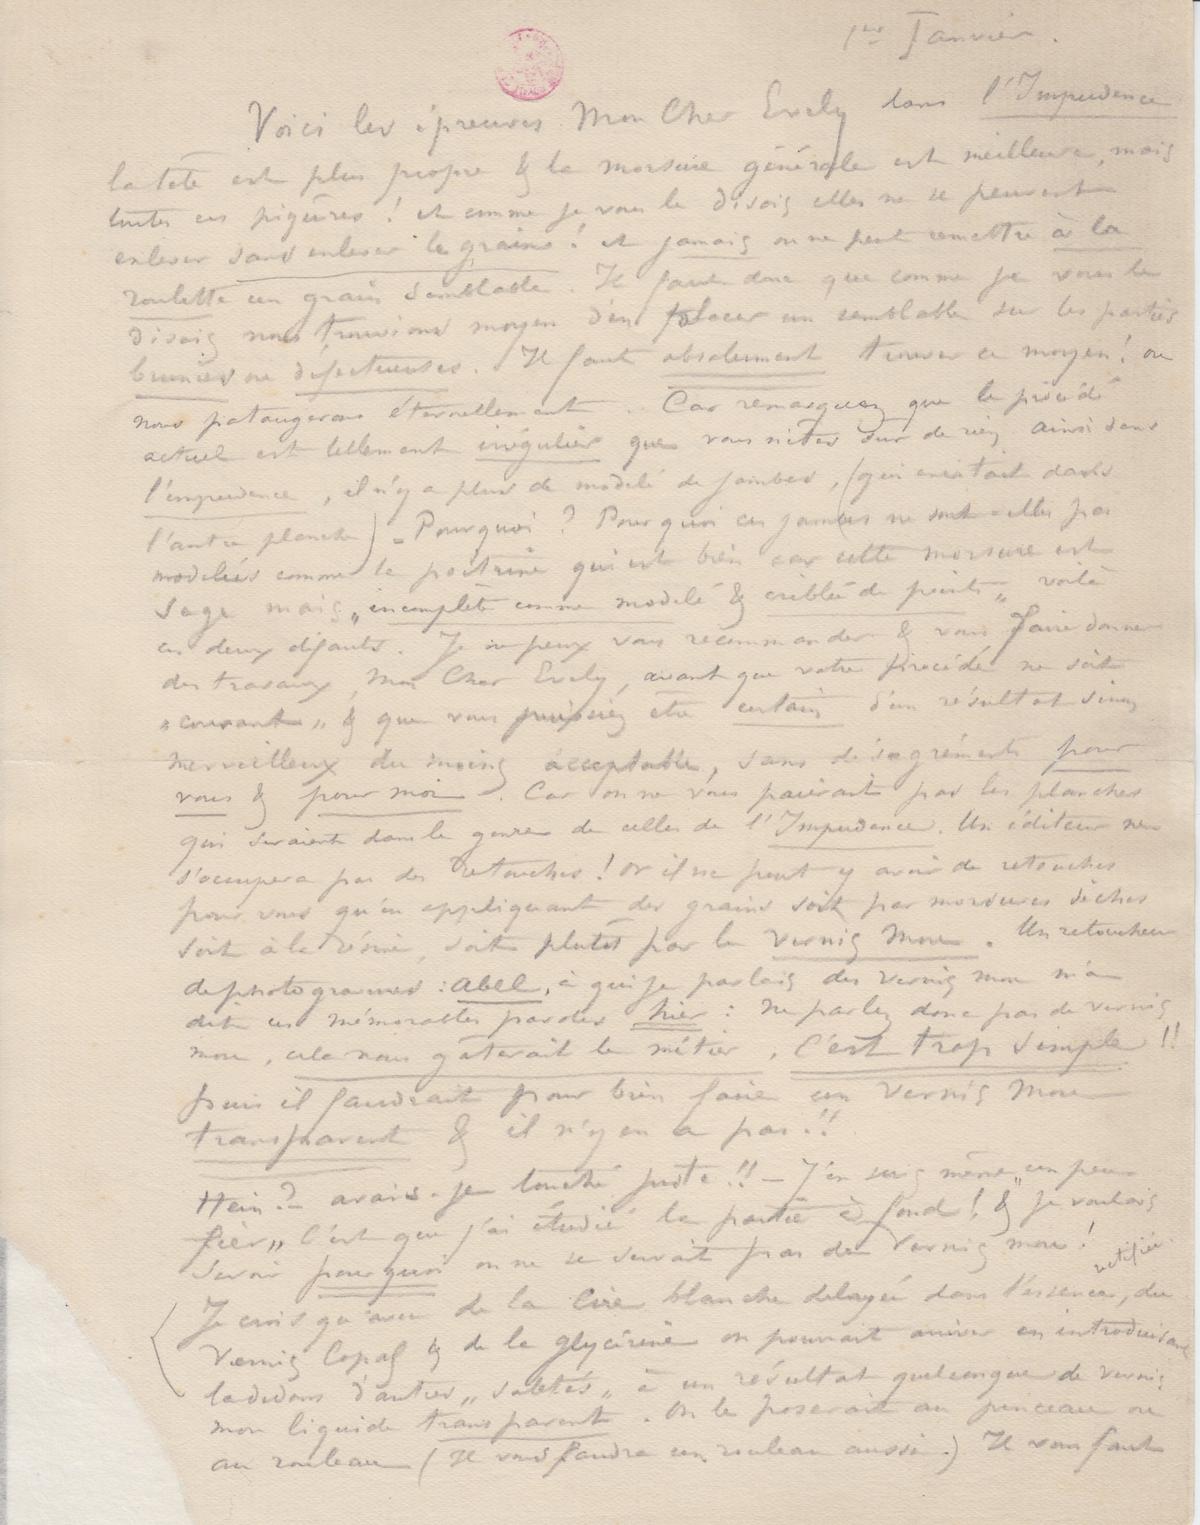 1er Janvier.
Voici les épreuves Mon Cher Evely dans l'Impudence
la tête est plus propre & la morsure générale est meilleure, mais
toutes ces piqûres ! et comme je vous le disais elles ne se peuvent
enlever sans enlever le grain ! et jamais on ne peut remettre à la
roulette un grain semblable. Il faut donc que comme je vous le
disais nous trouvions moyen d'en placer un semblable sur les parties
brunies ou défectueuses. Il faut absolument trouver ce moyen ! ou
nous pataugerons éternellement. Car remarquez que le procédé
actuel est tellement irrégulier que vous n'êtes sûr de rien ainsi dans
l'impudence, il n'y a plus de modelé de jambes, (qui existait dans
l'autre planche) - Pourquoi ? Pourquoi ces jambes ne sont-elles pas
modelées comme la poitrine qui est bien car cette morsure est
sage mais „incomplète comme modelé & criblée de points„ voilà
ces deux défauts. Je ne peux vous recommander & vous faire donner
des travaux, Mon Cher Evely, avant que votre procédé ne soit
„courant„ & que vous puissiez être certain d'un résultat sinon
merveilleux du moins acceptable, sans désagréments pour
vous & pour moi. Car on ne vous paierait pas les planches
qui seraient dans le genre de celles de l'Impudence. Un éditeur ne
s'occupera pas des retouches ! Or il ne peut y avoir de retouches
pour vous qu'en appliquant des grains soit par morsures sèches
soit à la résine, soit plutôt par le vernis mou. Un retoucheur
de photogravures : Abel, à qui je parlais des vernis mou m'a
dit ces mémorables paroles hier : Ne parlez donc pas de vernis
mou, cela nous gâterait le métier, c'est trop simple !!
puis il faudrait pour bien faire un vernis mou
transparent & il n'y en a pas !!
Hein ? avais-je touché juste !! - J'en suis même „un peu
fier„ C'est que j'ai étudié la partie à fond ! & je voulais
savoir pourquoi on ne se servait pas de vernis mou !
rectifiée
Je crois qu'avec de la Cire blanche delayée dans l'essence, du
Vernis Copal & de la glycérine on pourrait arriver en introduisant
là dedans d'autres „saletés„ à un résultat quelconque de vernis
mou liquide transparent. On le poserait au pinceau ou
au rouleau (Il vous faudra un rouleau aussi.) Il vous faut